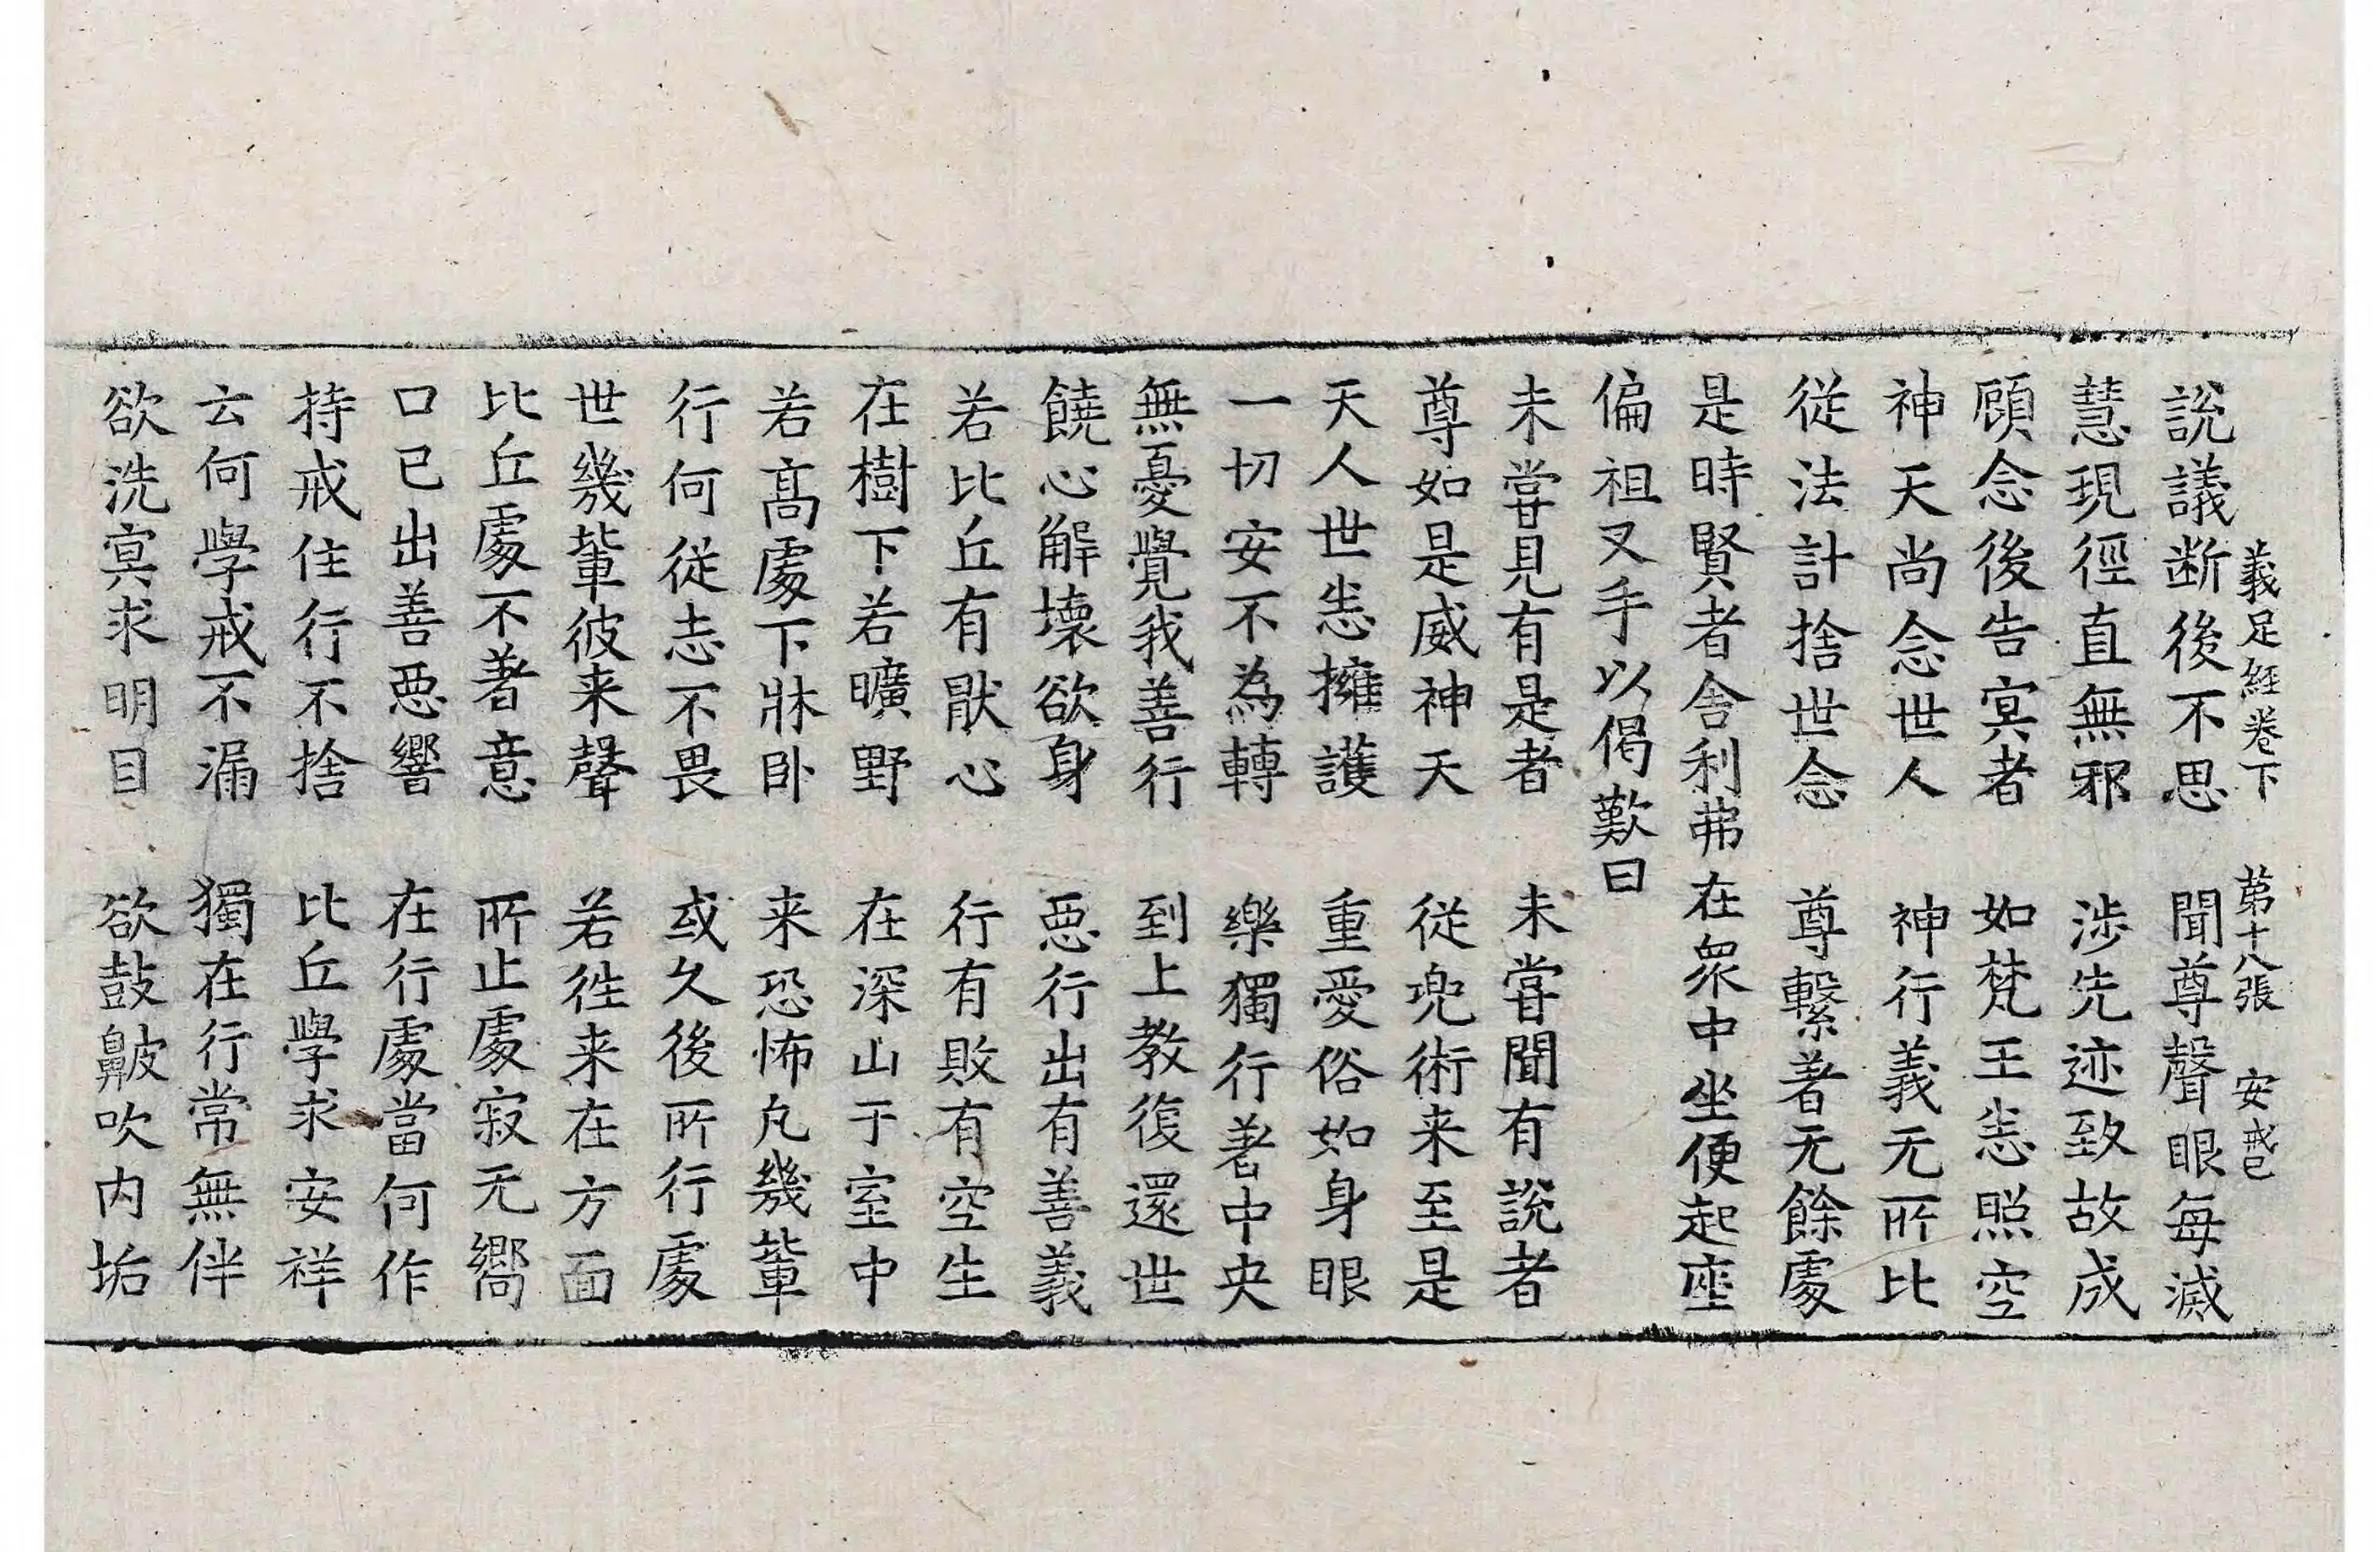 義足經卷下 第十八張 安戒已
說議断後不思 聞尊聲眼每滅
慧現徑直無邪 涉先迹致故成
顧念後告冥者 如梵王恙照空
神天尚念世人 神行義无所比
從法計捨世念 尊繫著无餘處
是時賢者舍利弗在衆中坐便起座
偏袒叉手以偈歎曰
未甞見有是者 未甞聞有說者
尊如是威神天 從兜術来至是
天人世恙擁護 重愛俗如身眼
一切安不為轉 樂獨行著中央
無憂覺我善行 到上教復還世
饒心解壞欲身 惡行出有善義
若比丘有猒心 行有敗有空生
在樹下若曠野 在深山于室中
若髙處下牀卧 来恐怖凡幾軰
行何從志不畏 或久後所行處
世幾軰彼来聲 若徃来在方面
比丘處不著意 所止處寂无嚮
口已出善惡響 在行處當何作
持戒住行不捨 比丘學求安祥
云何學戒不漏 獨在行常無伴
欲洗冥求明目 欲鼓鼻皮吹内垢